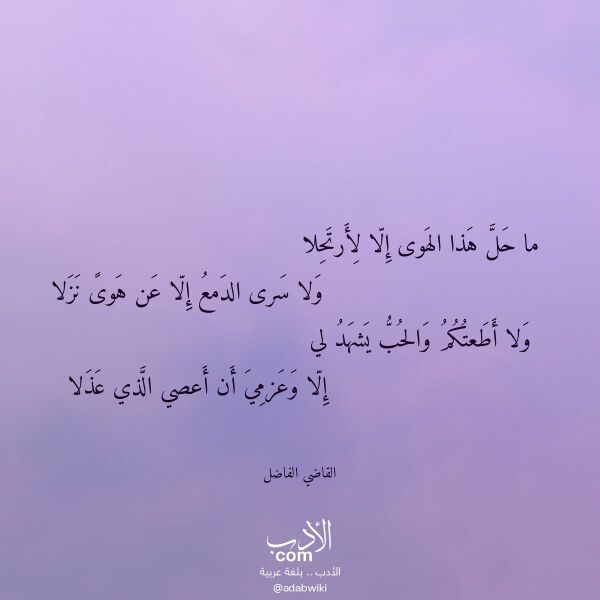 ما حَلَّ هَذا الهَوى إِلّا لِأَرتَحِلا
وَلا سَرى الدَمعُ إِلّا عَن هَوىً نَزَلا
وَلا أَطَعتُكُمُ وَالحُبُّ يَشهَدُ لي
إِلّا وَعَزمِيَ أَن أَعصي الَّذي عَذَلا
القاضي الفاضل
الأدب
.com
الأدب .. بلغة عربية
@adabwiki